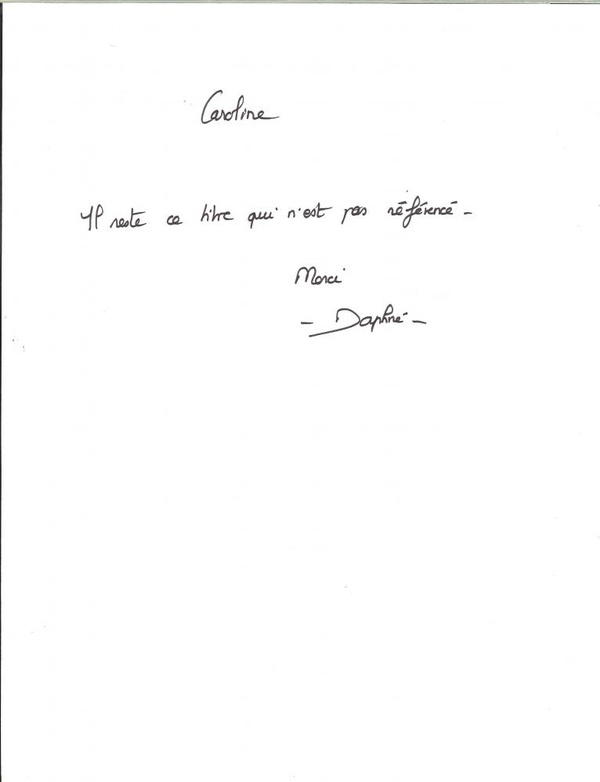 Caroline
Il reste ce titre qui n'est pas référencé -
Merci
- Daphné -